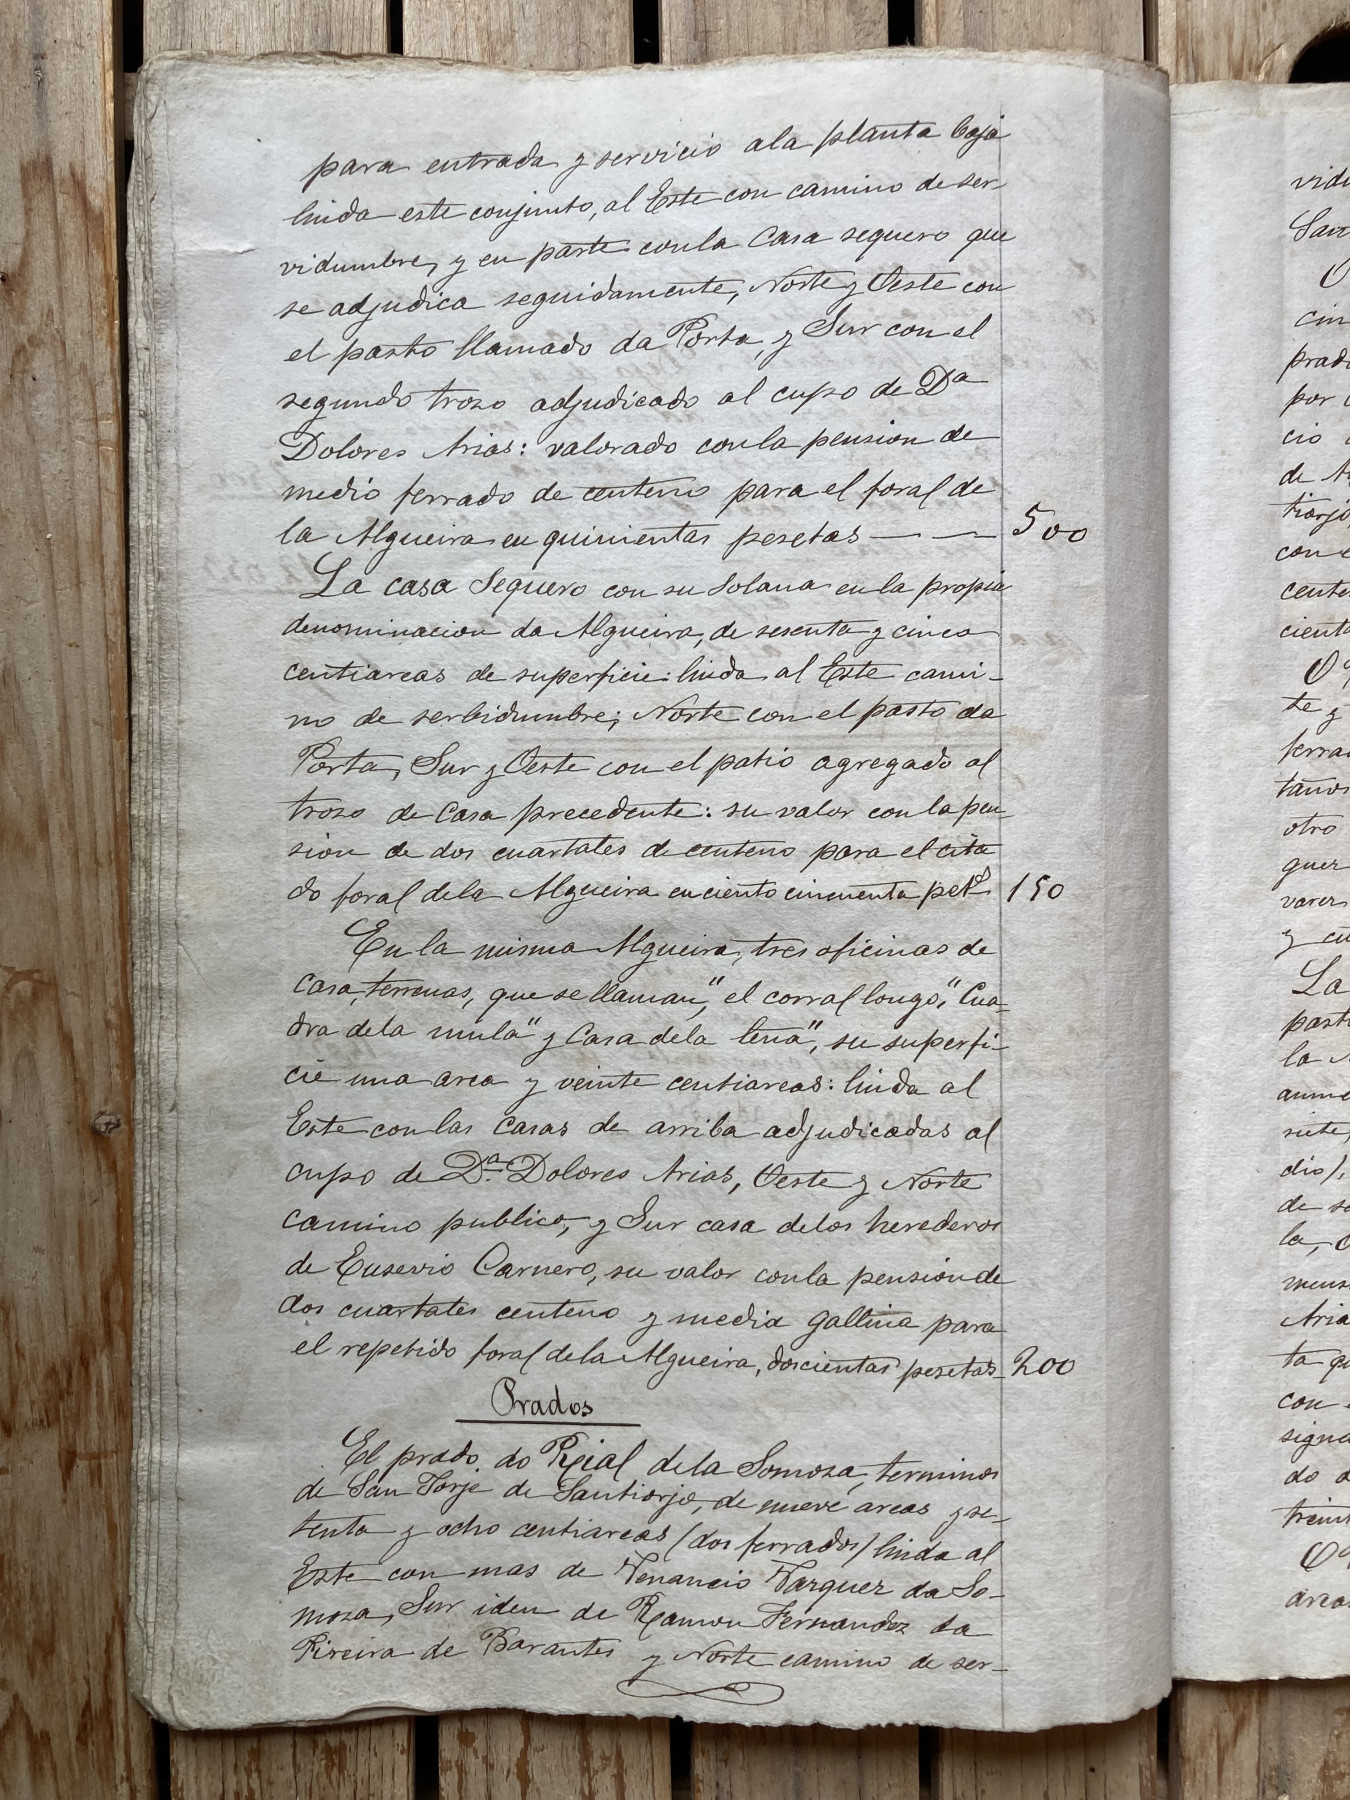 para entrada y servicio ala planta baja
linda este conjunto, al Este con camino de ser-
vidumbre, y en parte conla Casa sequero que
se adjudica seguidamente, Norte y Oeste con
el pasto llamado da Porta, y Sur con el
segundo trozo adjudicado al cupo de Dª
Dolores Arias: valorado conla pension de
medio ferrado de centeno para el foral de
la Algueira en quinientas pesetas — — 500
La casa Sequero con su Solana en la propia
denominacion da Algueira, de sesenta y cinco
centiareas de superficie: linda al Este cami-
no de serbidumbre; Norte con el pasto da
Porta, Sur y Oeste con el patio agregado al
trozo de Casa precedente: su valor con la pen
sion de dos cuartales de centeno para el cita
do foral dela Algueira en ciento cincuenta petˢ 150
En la misma Algueira, tres oficinas de
Casa, terrenas, que se llaman," el corral longo", "Cua-
dra dela mula" y Casa dela leña", su superfi-
cie una area y veinte centiareas: linda al
Este con las Casas de arriba adjudicadas al
cupo de Dª Dolores Arias, Oeste y Norte
Camino publico, y Sur casa delos herederos
de Eusevio Carnero, su valor conla pension de
dos cuartales centeno y media gallina para
el repetido foral dela Algueira, doscientas pesetas 200
Prados
El prado do Rejal dela Somoza, terminos
de San Jorje de Santiorjo, de nueve areas y se-
tenta y ocho centiareas (dos ferrados) linda al
Este con mas de Venancio Vazquez da So-
moza, Sur iden de Ramon Fernandez da
Pireira de Barantes y Norte camino de ser-
vidu
San
cin
prad
por
cio
de
tiorjo
con
cente
cienta
te y
ferra
otro
quer
varez
La
past
la
aume
siete,
dio),
de
la,
mens
Aria
ta
con
signa
do
treint
area